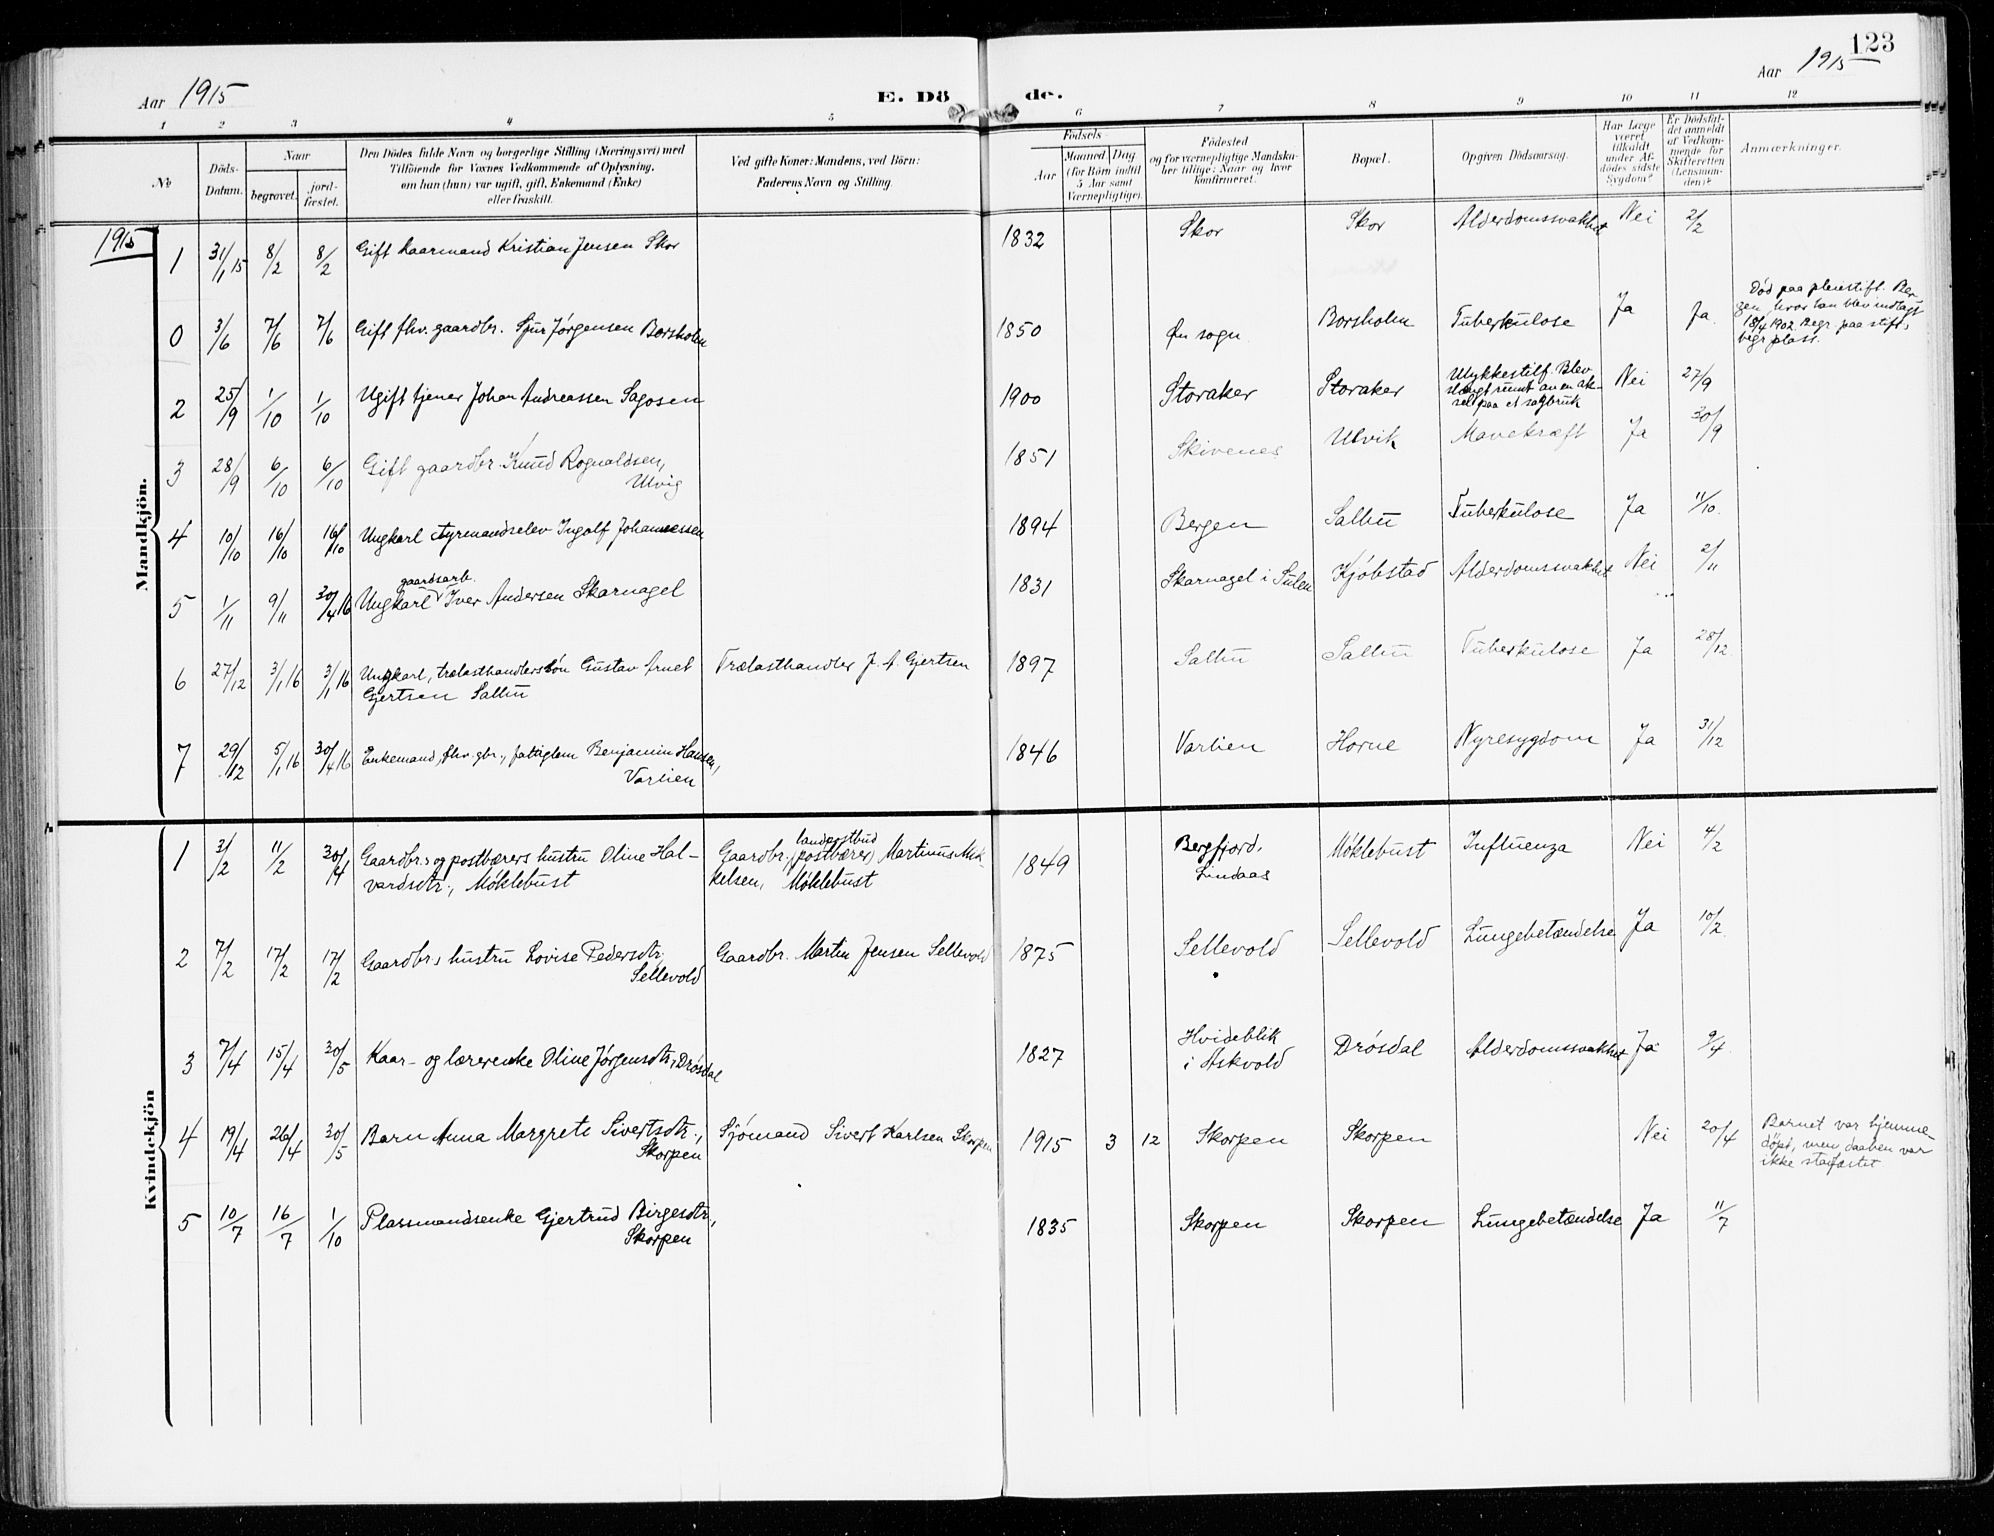 123
Aar 1915
E. Dö
de.
Aar 1915
1 2 3 4 5 6 7 8 9 10 11 12
№
Döds-
Datum.
Naar
begravet.
jord-
fæstet.
Den Dödes fulde Navn og borgerlige Stilling (Næringsvei) med
Tilföiende for Voxnes Vedkommende af Oplysning,
om han (hun) var ugift, gift, Enkemand (Enke)
eller fraskilt.
Ved gifte Koner: Mandens, ved Börn:
Faderens Navn og Stilling.
Födsels-
Aar
Maaned Dag
(for Börn indtil
5 Aar samt
Værnepligtige).
Födested
og for værnepligtige Mandska-
ber tillige: Naar og hvor
konfirmeret.
Bopæl.
Opgiven Dödsaarsag.
Har Læge
været
tilkaldt
under Af-
dödes sidste
Sygdom?
Er Dödsfal-
det anmeldt
af Vedkom-
mende for
Skifteretten
(Lensman-
den)?
Anmærkninger.
1915
Mandkjön.
1 31/1 15 8/2 8/2 Gift kaarmand Kristian Jensen Skor 1832 Skor Skor Alderdomssvakhet Nei 2/2
0 3/6 7/6 7/6 Gift fhv. gaardbr. Sjur Jørgensen Borsholm 1850 sogn Borsholm Tuberkulose Ja Ja
Død paa pleiestift. Ber-
gen, hvor han blev indlagt
18/4 1902. Begr. paa stift.
begr. plass.
2 25/9 1/10 1/10 Ugift tjener Johan Andreassen Sagosen 1900 Storaker Storaker
Ulykkestilf. Blev
slængt rundt av en ak-
sel paa et sagbruk
Nei 27/9
3 28/9 6/10 6/10 Gift gaardbr. Knud Rognaldsen,
Ulvig
1851 Skivenes Ulvik Mavekræft Ja 30/9
4 10/10 16/10 16/10 Ungkarl styrmandselev Ingolf Johannessen 1894 Bergen Salbu Tuberkulose Ja 11/10
gaardsarb.
5 1/11 9/11 30/4 16 Ungkarl Iver Andersen Skarnagel 1831 Skarnagel i Sulen Kjøbstad Alderdomssvakhet Nei 2/11
6 27/12 3/1 16 3/1 16 Ungkarl, trælasthandlersøn Gustav Arnet
Gjertsen Salbu
Trælasthandler J. A. Gjertsen 1897 Salbu Salbu Tuberkulose Ja 28/12
7 29/12 5/1 16 30/4 16 Enkemand, fhv. gbr., fattiglem Benjamin Hansen,
Varlien
1846 Varlien Horne Nyresygdom Ja 31/12
Kvindekjön
1 3/2 11/2 30/4 Gaardbr.s og postbærers hustru Oline Hal-
vardsdtr., Møklebust
landpostbud
Gaardbr. (postbærer) Martinus Mik-
kelsen, Møklebust
1849 Bergfjord,
Lindaas
Møklebust Influenza Nei 4/2
2 7/2 17/2 17/2 Gaardbr.s hustru Lovise Pedersdtr.
Sellevold
Gaardbr. Martin Jensen Sellevold 1875 Sellevold Sellevold Lungebetændelse Ja 10/2
3 7/4 15/4 30/5 Kaar- og lærerenke Oline Jørgensdtr., Drøsdal 1827 Hvideblik
i Askvold
Drøsdal Alderdomssvakhet Ja 9/4
4 19/4 26/4 30/5 Barn Anna Margrete Sivertsdtr.,
Skorpen
Sjømand Sivert Karlsen Skorpen 1915 3 12 Skorpen Skorpen Nei 20/4
Barnet var hjemme-
døpt, men daaben var
ikke stadfæstet
5 10/7 16/7 1/10 Plassmandsenke Gjertrud Birgesdtr.,
Skorpen
1835 Skorpen Skorpen Lungebetændelse Ja 11/7